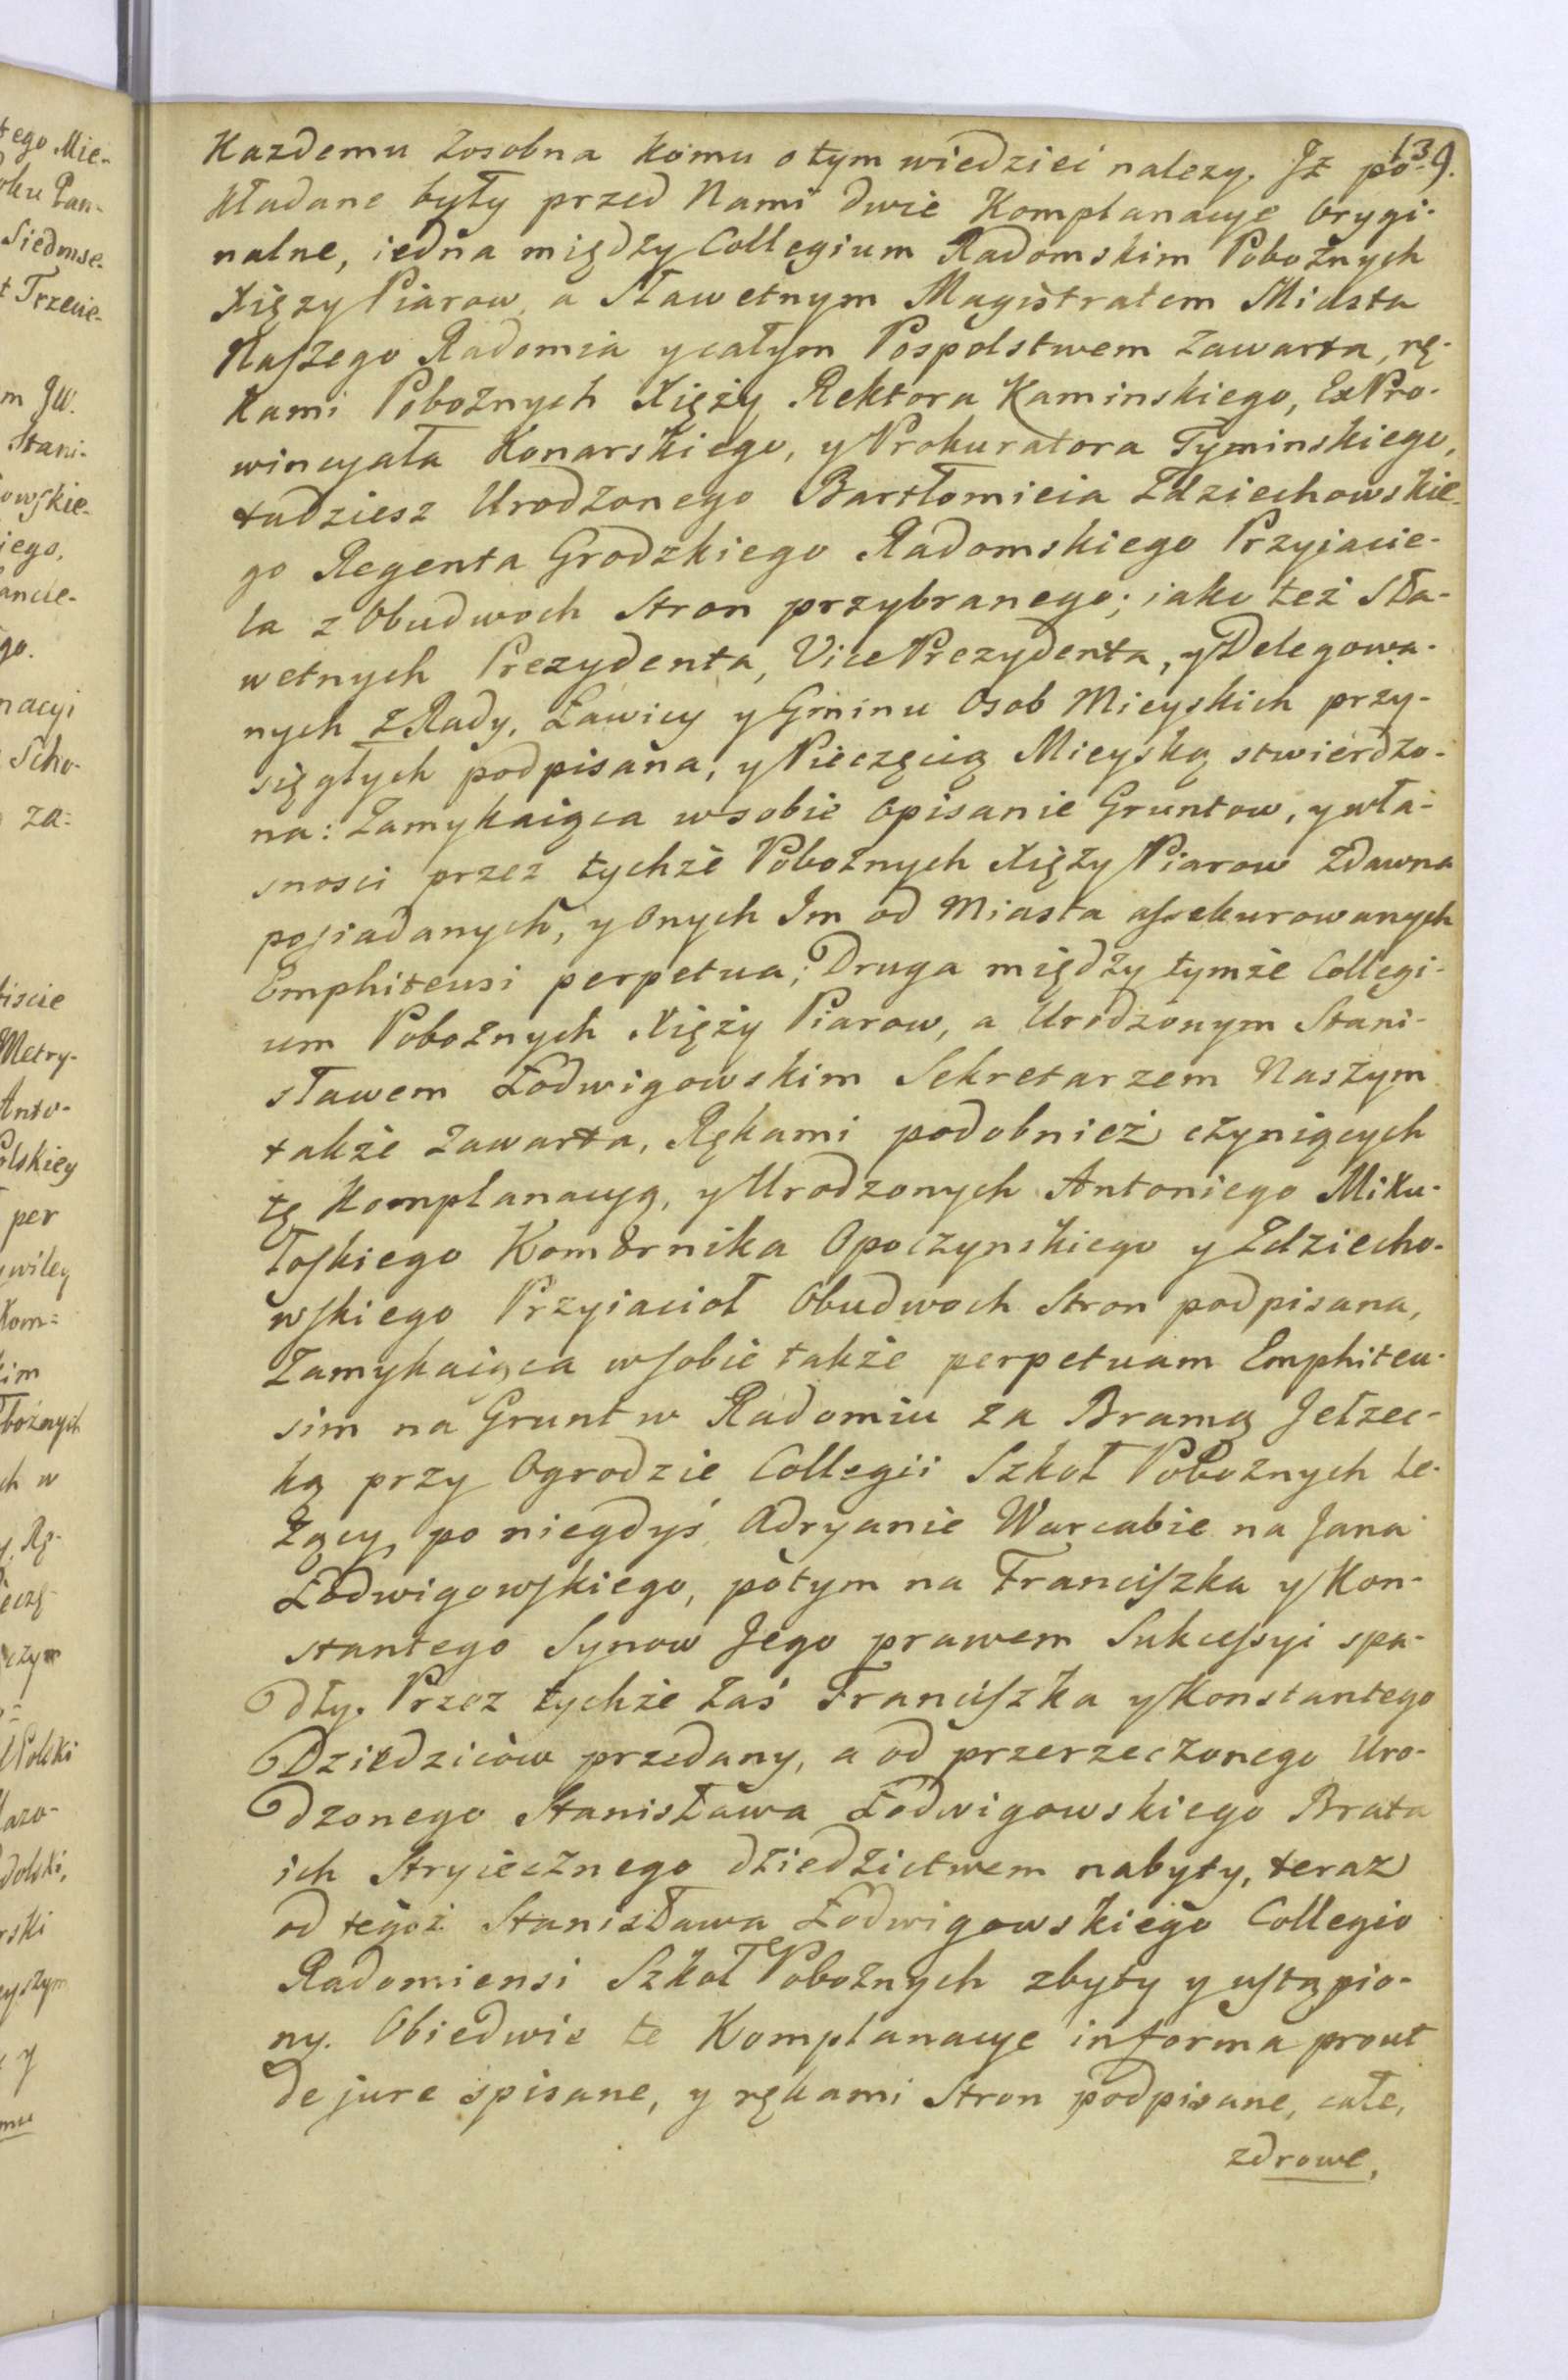 Kazdemu zosobna komu o tym wiedziec nalezy. Jz po- 139.
kładane były przed Nami dwie Komplanacye Orygi-
nalne, iedna między Collegium Radomskim Pobożnych
Xięzy Piarow, a Sławetnym Magistratem Miasta
Naszego Radomia y całym Pospolstwem zawarta, rę-
kami Pobożnych Xięży Rektora Kaminskiego, Ex Pro-
wincyała Konarskiego, y Prokuratora Tyminskiego,
tudziesz Urodzonego Bartłomieia Zdziechowskie-
go Regenta Grodzkiego Radomskiego Przyiacie-
la z Obudwoch Stron przybranego; iako też Sła-
wetnych Prezydenta, Vice Prezydenta, y Delegowa-
nych z Rady, Ławicy y Gminu Osob Mieyskich przy-
sięgłych podpisana, y Pieczęcią Mieyską stwierdzo-
na: Zamykaiąca w sobie Opisanie Gruntow, y wła-
snosci przez tychże Pobożnych Xięży Piarow zdawna
posiadanych, y Onych Im od Miasta assekurowanych
Emphiteusi perpetua; Druga między tymże Collegi-
um Pobożnych Xięży Piarow, a Urodzonym Stani-
sławem Łodwigowskim Sekretarzem Naszym
także zawarta, Rękami podobnież czyniących
tę Komplanacyą, y Urodzonych Antoniego Miku-
łoskiego Komornika Opoczynskiego y Zdziecho-
wskiego Przyiacioł Obudwoch Stron podpisana,
Zamykaiąca w sobie także perpetuam Emphiteu-
sim na Grunt w Radomiu za Bramą Jełzec-
ką przy Ogrodzie Collegii Szkoł Pobożnych le-
żący, po niegdyś Adryanie Warcabie na Jana
Łodwigowskiego, potym na Franciszka y Kon-
stantego Synow Jego prawem Sukcessyi spa-
dły. Przez tychże zaś Franciszka y Konstantego
Dziedziców przedany, a od przerzeczonego Uro-
dzonego Stanisława Łodwigowskiego Brata
ich Stryiecznego dziedzictwem nabyty, teraz
od tegoż Stanisława Łodwigowskiego Collegio
Radomiensi Szkoł Pobożnych zbyty y ustąpio-
ny. Obiedwie te Komplanacye in forma prout
de jure spisane, y rękami Stron podpisane, całe,
zdrowe,